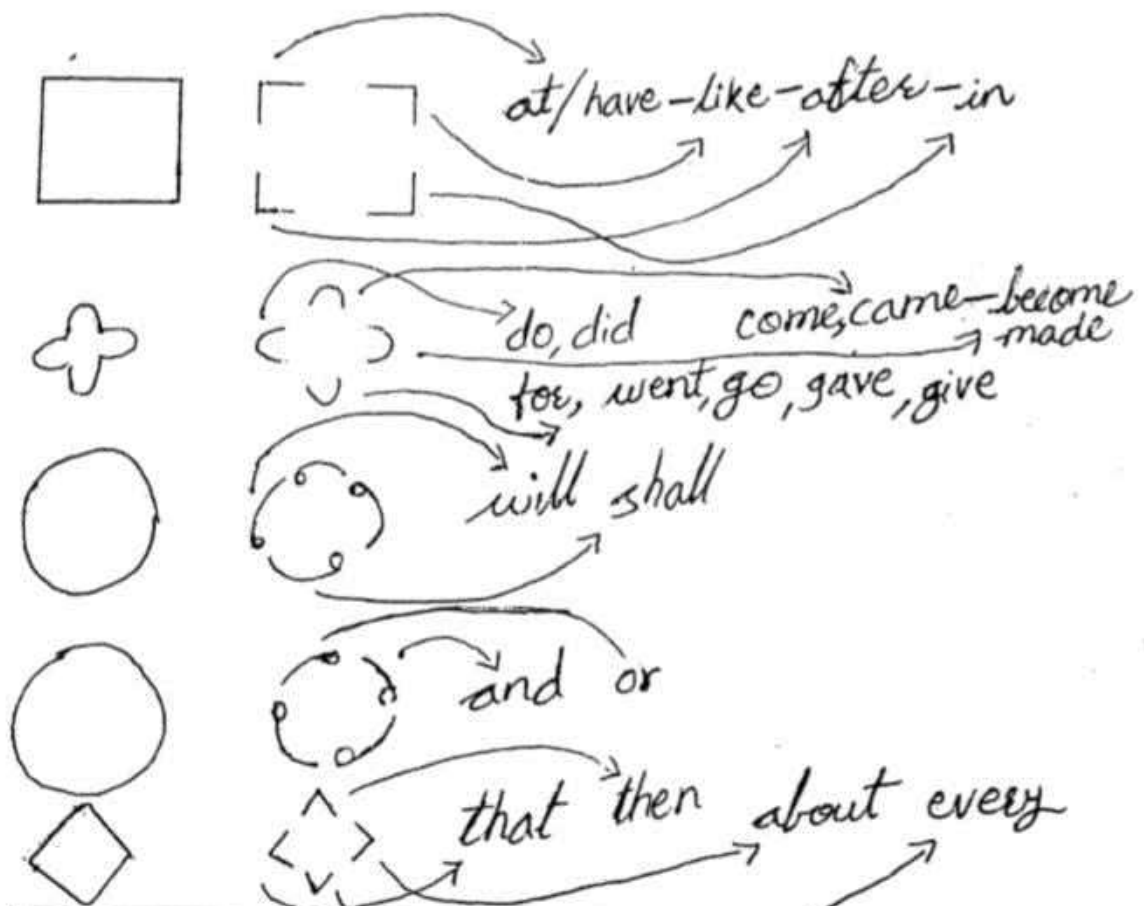 at/have-like-after-in
do, did come, came-become
made
for, went, go, gave, give
will shall
and or
that then about every